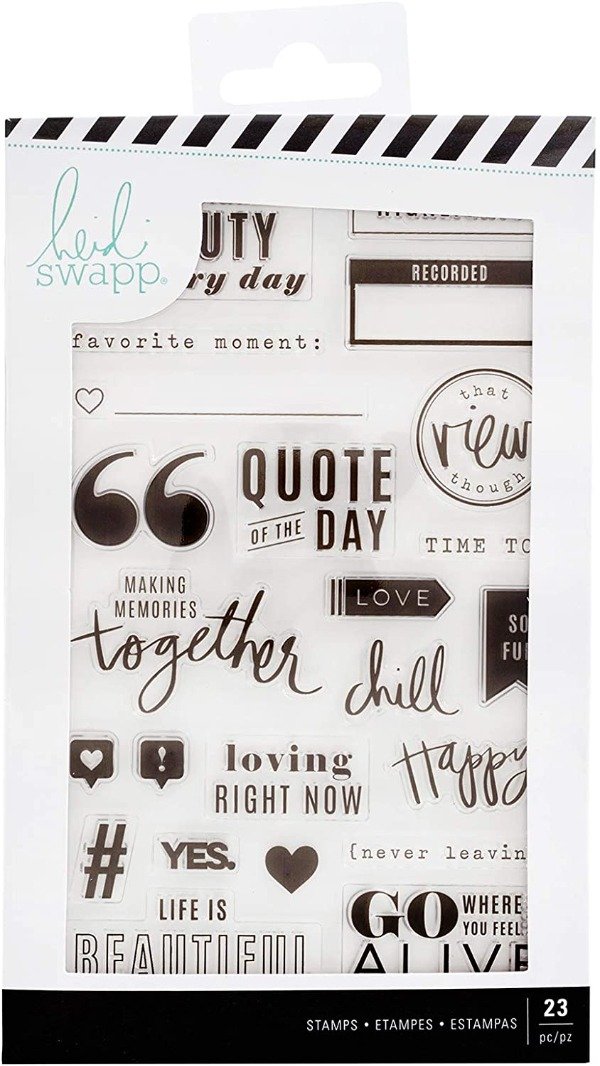 heidi
swapp®
UTY
ry day
RECORDED
favorite moment:
that
view
though
QUOTE
OF THE
DAY
TIME TO
MAKING
MEMORIES
together
LOVE
SO
FU
chill
!
loving
RIGHT NOW
Happy
#
YES.
{never leavin
LIFE IS
BEAUTIFUL
GO WHERE
YOU FEEL
ALIVE
STAMPS • ETAMPES • ESTAMPAS
23
pc/pz